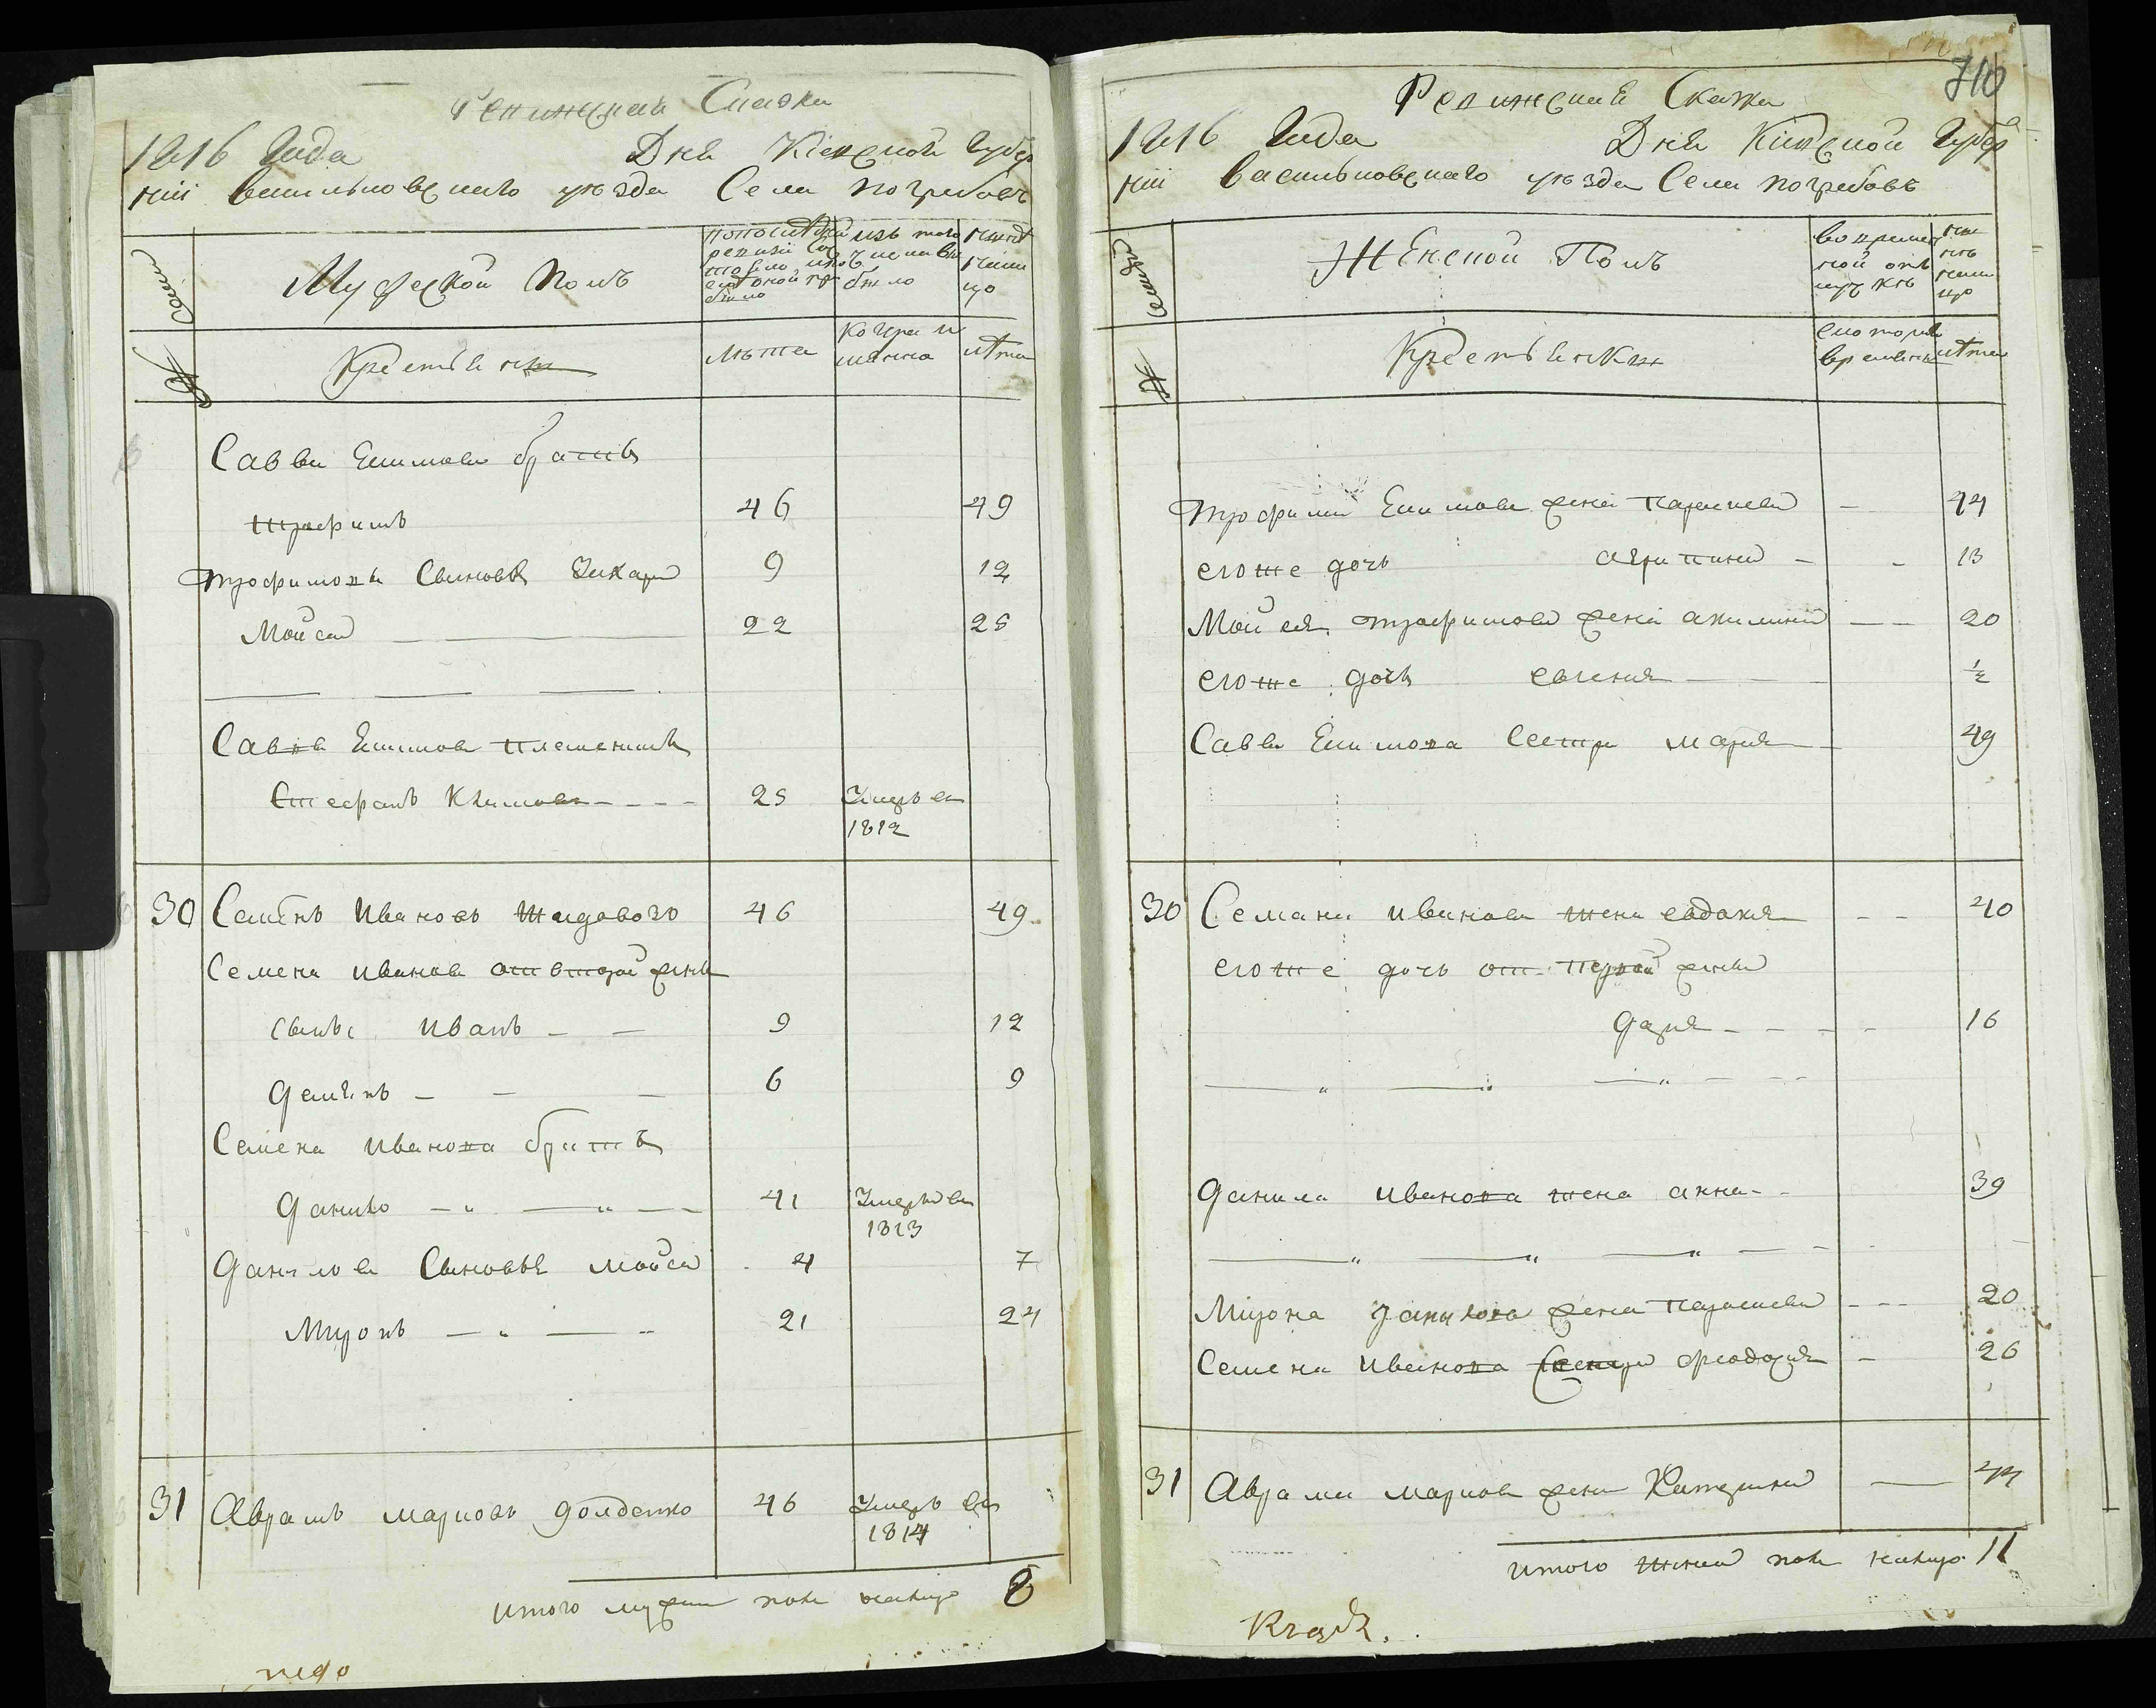 Ревижская Сказка
1816 Года Дня Кіевской Губер
ніи Васильковскаго уѣзда Села Погребовъ
Семьи
Мужеской Полъ
по последней ревизіи состояло и после оной прибыло
изъ того числа выбыло
ныне на лицо
№
Крестьяне
Лѣта
когда именно
лѣта
Саввы Ефимова братъ
Трофимъ 46 49
Трофимовы Сыновья Захарій 9 12
Мойсей 22 25
Саввы Ефимова племенникъ
Стефанъ Климовъ 25 Умеръ въ
1812
30 Семёнъ Ивановъ 46 49
Семена Иванова отъ второй жены
сынъ Иванъ 9 12
Демянъ 6 9
Семена Иванова братъ
Данило 41 Умеръ въ
1813
Данилова Сыновья Мойсей 4 7
Миронъ 21 24
31 Аврамъ Марковъ Долденко 46 Умеръ въ
1814
Итого мужеска пола налицо 8
710
Ревижская Сказка
1816 Года Дня Кіевской Губер
ніи Васильковскаго уѣзда Села Погребовъ
Семьи
Женской Полъ
во времен
ной отлучке
ны
нѣ
нали
цо
№
Крестьянки
с котораго
времени
лѣта
Трофима Ефимова жена Параскева 44
его же дочь Агрипина 13
Мойсея Трофимова жена Акилина 20
его же дочь Евгения ½
Саввы Ефимова Сестра Мария 49
30 Семена Иванова жена Евдокия 40
его же дочь отъ первой жены
Дария 16
Данила Иванова жена Анна 39
Мирона Данилова жена Параскева 20
Семена Иванова Сестра Феодория 26
31 Аврама Маркова жена Катерина 44
Итого женска пола налицо 11